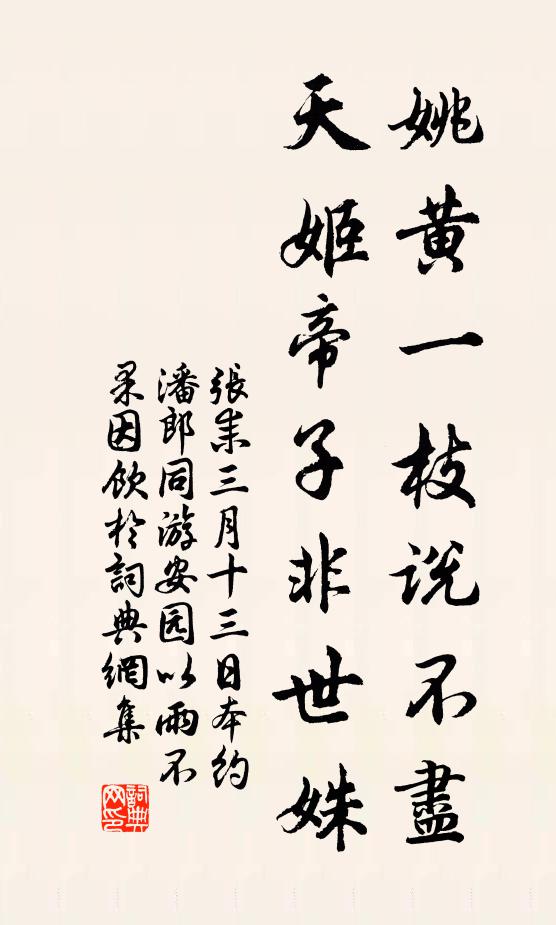 姚黄一枝说不盡
天姬帝子非世姝
張耒三月十三日本约
潘郎同游安园以雨不
果因飲於詞典網集
詞典网印